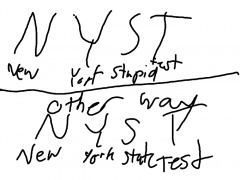 N Y S T
New York stupid test
other way
N Y S T
New York State Test